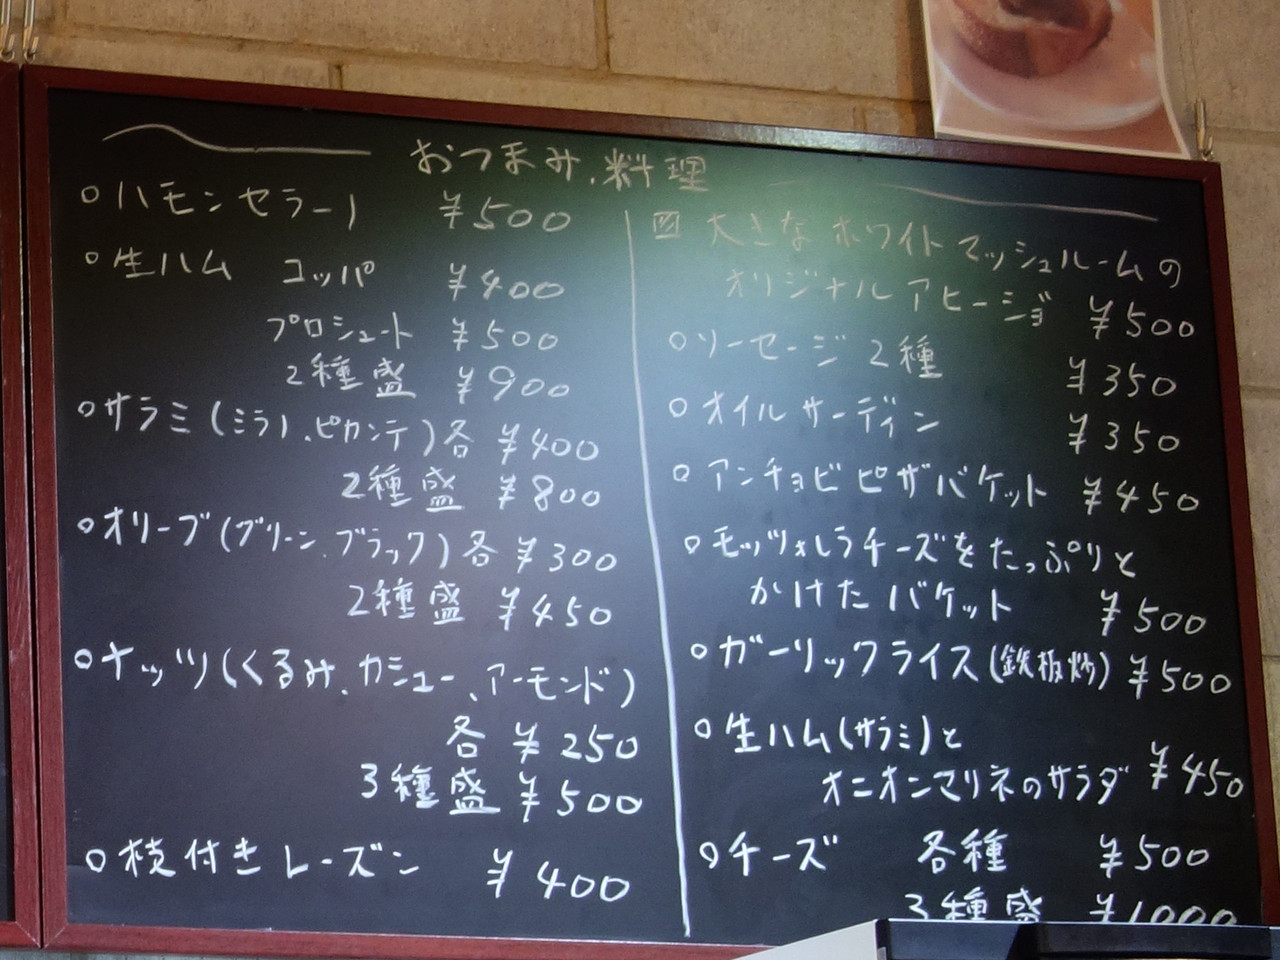 おつまみ、料理
○ハモンセラーノ ¥500
○生ハム コッパ ¥400
プロシュート ¥500
2種盛 ¥900
○サラミ(ミラノ、ピカンテ)各 ¥400
2種盛 ¥800
○オリーブ(グリーン、ブラック)各 ¥300
2種盛 ¥450
○ナッツ(くるみ、カシュー、アーモンド)
各 ¥250
3種盛 ¥500
○枝付きレーズン ¥400
大きなホワイトマッシュルームの
オリジナルアヒージョ ¥500
○ソーセージ2種 ¥350
○オイルサーディン ¥350
○アンチョビピザバケット ¥450
○モッツァレラチーズをたっぷりと
かけたバケット ¥500
○ガーリックライス(鉄板炒) ¥500
○生ハム(サラミ)と
オニオンマリネのサラダ ¥450
○チーズ 各種 ¥500
3種盛 ¥1000